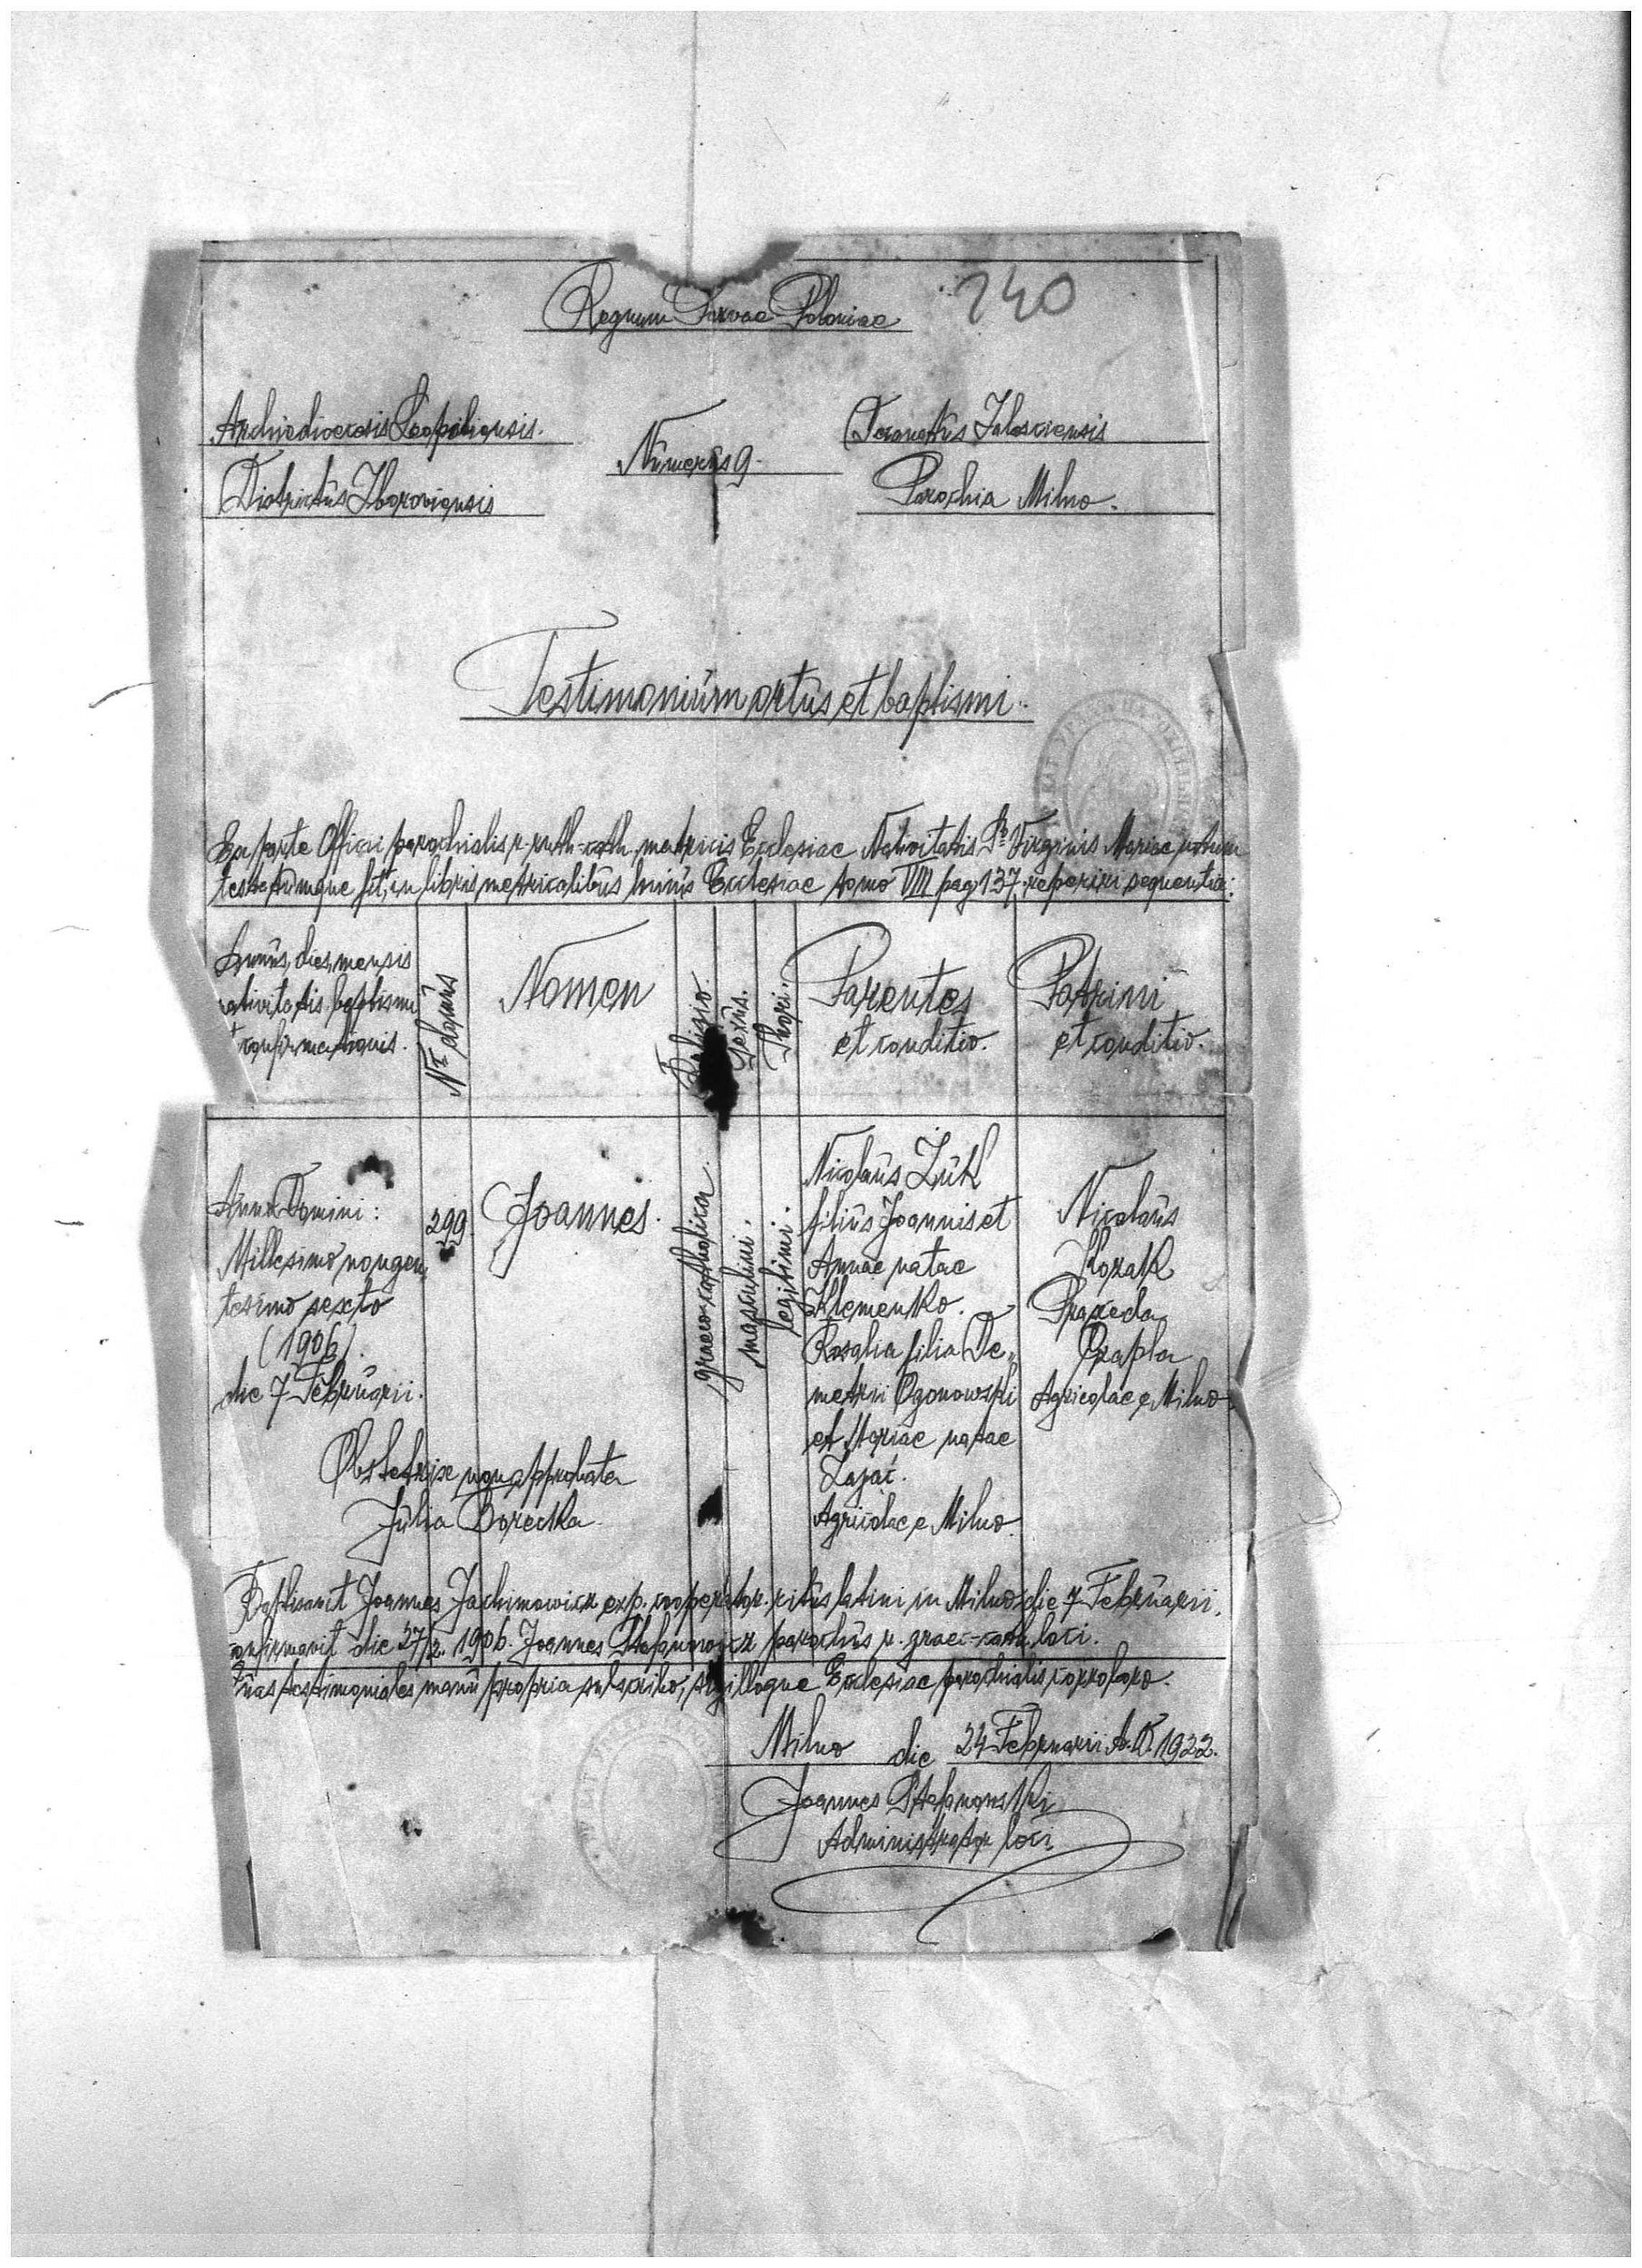 Regnum Parvae Poloniae
240
Archidioecesis Leopoliensis.
Districtus Zboroviensis
Numerus 9.
Decanatus Zalosciensis
Parochia Milno.
Testimonium ortus et baptismi.
Ex parte Officii parochialis r. ruth-cath. matricis Ecclesiae Nativitatis B. Virginis Mariae notum
testatumque fit, in libris metricalibus huius Ecclesiae tomo VIII pag 137 reperiri sequentia:
Annus, dies, mensis
nativitatis baptismi
et confirmationis.
Nr. domus
Nomen
Religio.
Sexus.
Thori.
Parentes
et conditio.
Patrini
et conditio.
Anno Domini:
Millesimo nongen
tesimo sexto
(1906).
die 7 Februarii.
299
Joannes.
graeco-catholica.
masculini.
legitimi.
Nicolaus Żuk
filius Joannis et
Annae natae
Klemenko.
Rosalia filia De„
metrii Ogonowski
et Mariae natae
Zajać.
Agricolae e Milno.
Nicolaus
Kozak
Praxeda
Czapla
Agricolae e Milno.
Obstetrix non approbata
Julia Borecka.
Baptisavit Joannes Jachimowicz exp. cooperator. ritus latini in Milno die 7 Februarii,
confirmavit die 27/2. 1906. Joannes parochus r. graec-cath. loci.
Quas testimoniales manu propria subscribo, sigilloque Ecclesiae parochialis corroboro.
Milno die 24 Februarii A.D. 1922.
Joannes Stefanowski
Administrator loci